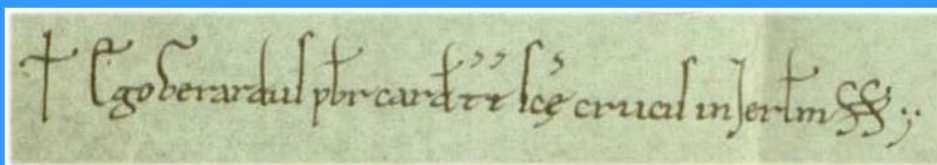 † Ego Gerardus pbr card tt sce crucis in Jerlm SS